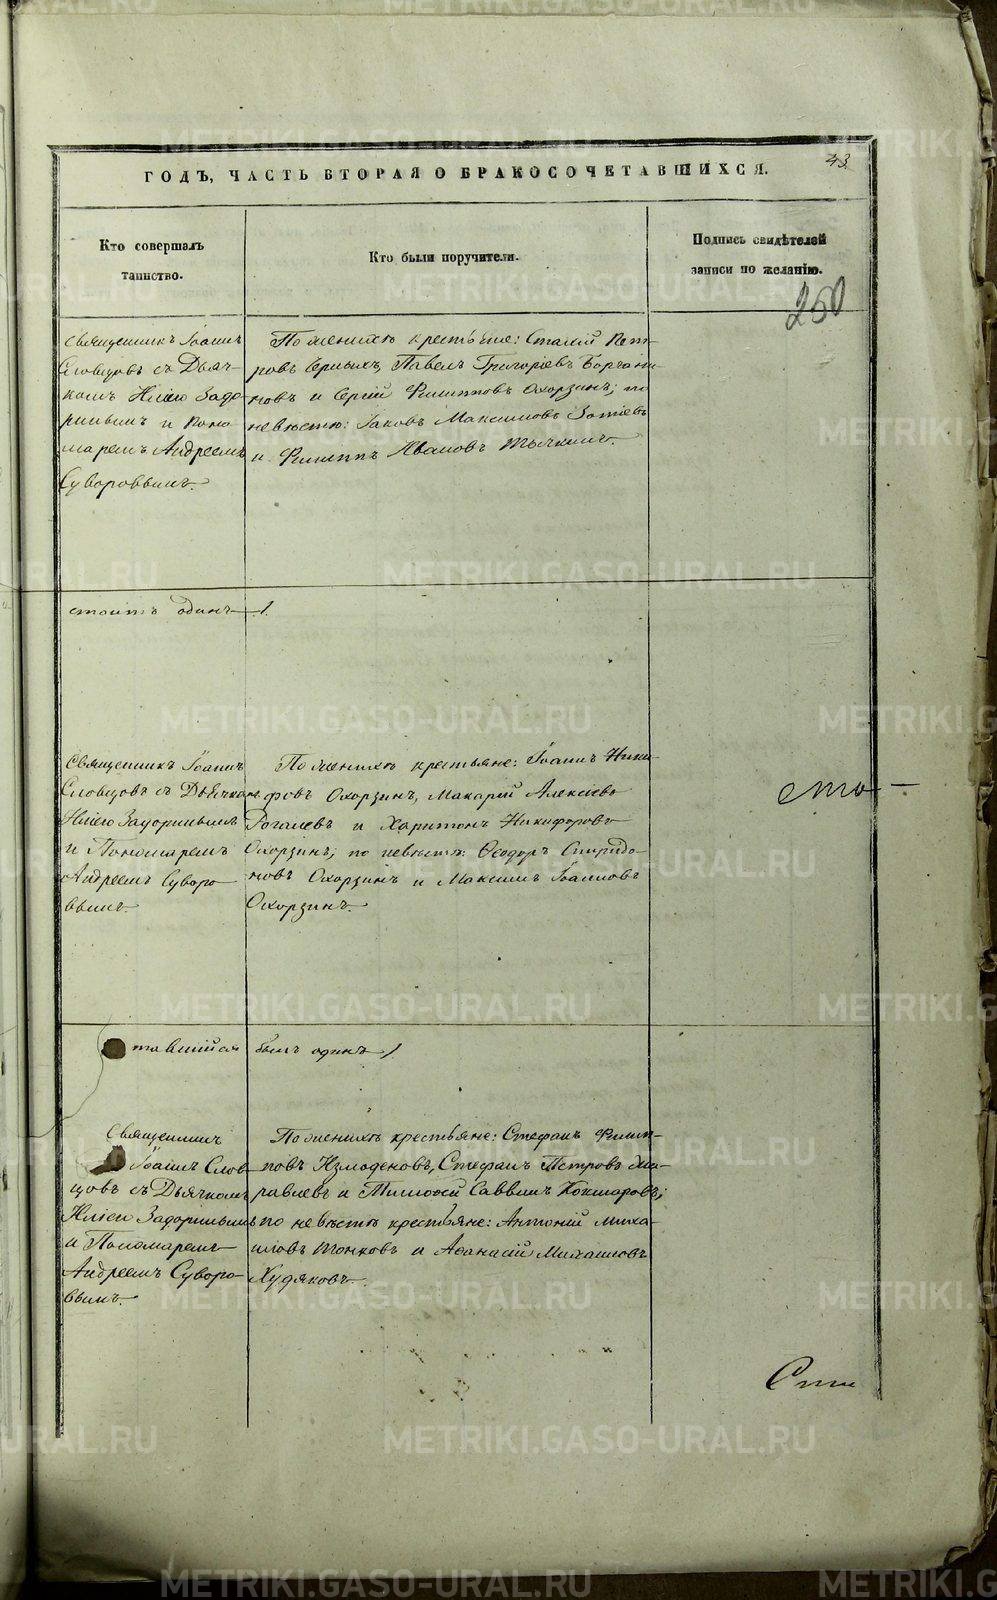 METRIKI.GASO-URAL.RU
43.
ГОДЪ, ЧАСТЬ ВТОРАЯ О БРАКОСОЧЕТАВШИХСЯ.
Кто совершалъ
таинство.
Кто были поручители.
Подпись свидѣтелей
записи по желанію.
250
Священникъ Іоаннъ
Словцовъ съ Дьяч-
комъ Иліею Задо-
ринымъ и Поно
маремъ Андреемъ
Суворовымъ.
По женихѣ крестьяне: Пет-
ровъ Павелъ Григоріевъ
и Сергій Филипповъ Охорзинъ; по
невѣстѣ: Іаковъ Максимовъ Зотѣевъ
и Филиппъ Ивановъ Тычкинъ.
стоитъ одинъ 1.
Священникъ Іоаннъ
Словцовъ съ Дьячкомъ
Иліею Задоринымъ
и Пономаремъ
Андреемъ Суворо
вымъ.
По женихѣ крестьяне: Іоаннъ Ники-
форовъ Охорзинъ, Макарій Алексѣевъ
Рогалевъ и Харитонъ Никифоровъ
Охорзинъ; по невѣстѣ: Ѳеодоръ Спиридо
новъ Охорзинъ и Максимъ Іоанновъ
Охорзинъ.
сто-
тавшійся былъ одинъ 1
Священникъ
Іоаннъ Слов
цовъ съ Дьячкомъ
Иліею Задоринымъ
и Пономаремъ
Андреемъ Суворо
вымъ.
По женихѣ крестьяне: Стефанъ Филип-
повъ Измоденовъ, Стефанъ Петровъ Жу-
равлевъ и Тимоѳей Саввинъ Кокшаровъ;
по невѣстѣ крестьяне: Антоній Миха
иловъ Тонковъ и Аѳанасій Михаиловъ
Худяковъ.